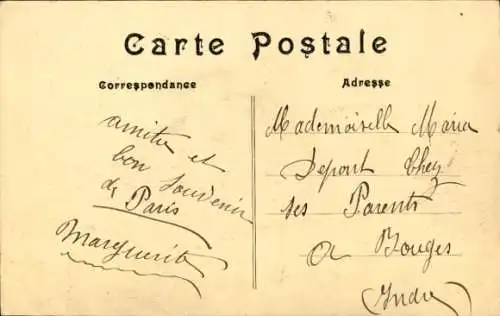 Carte Postale
Correspondance
Adresse
amitié et
bon souvenir
de Paris
Marguerite
Mademoiselle Maria
Depont Chez
ses Parents
a Bouges
(Indre)